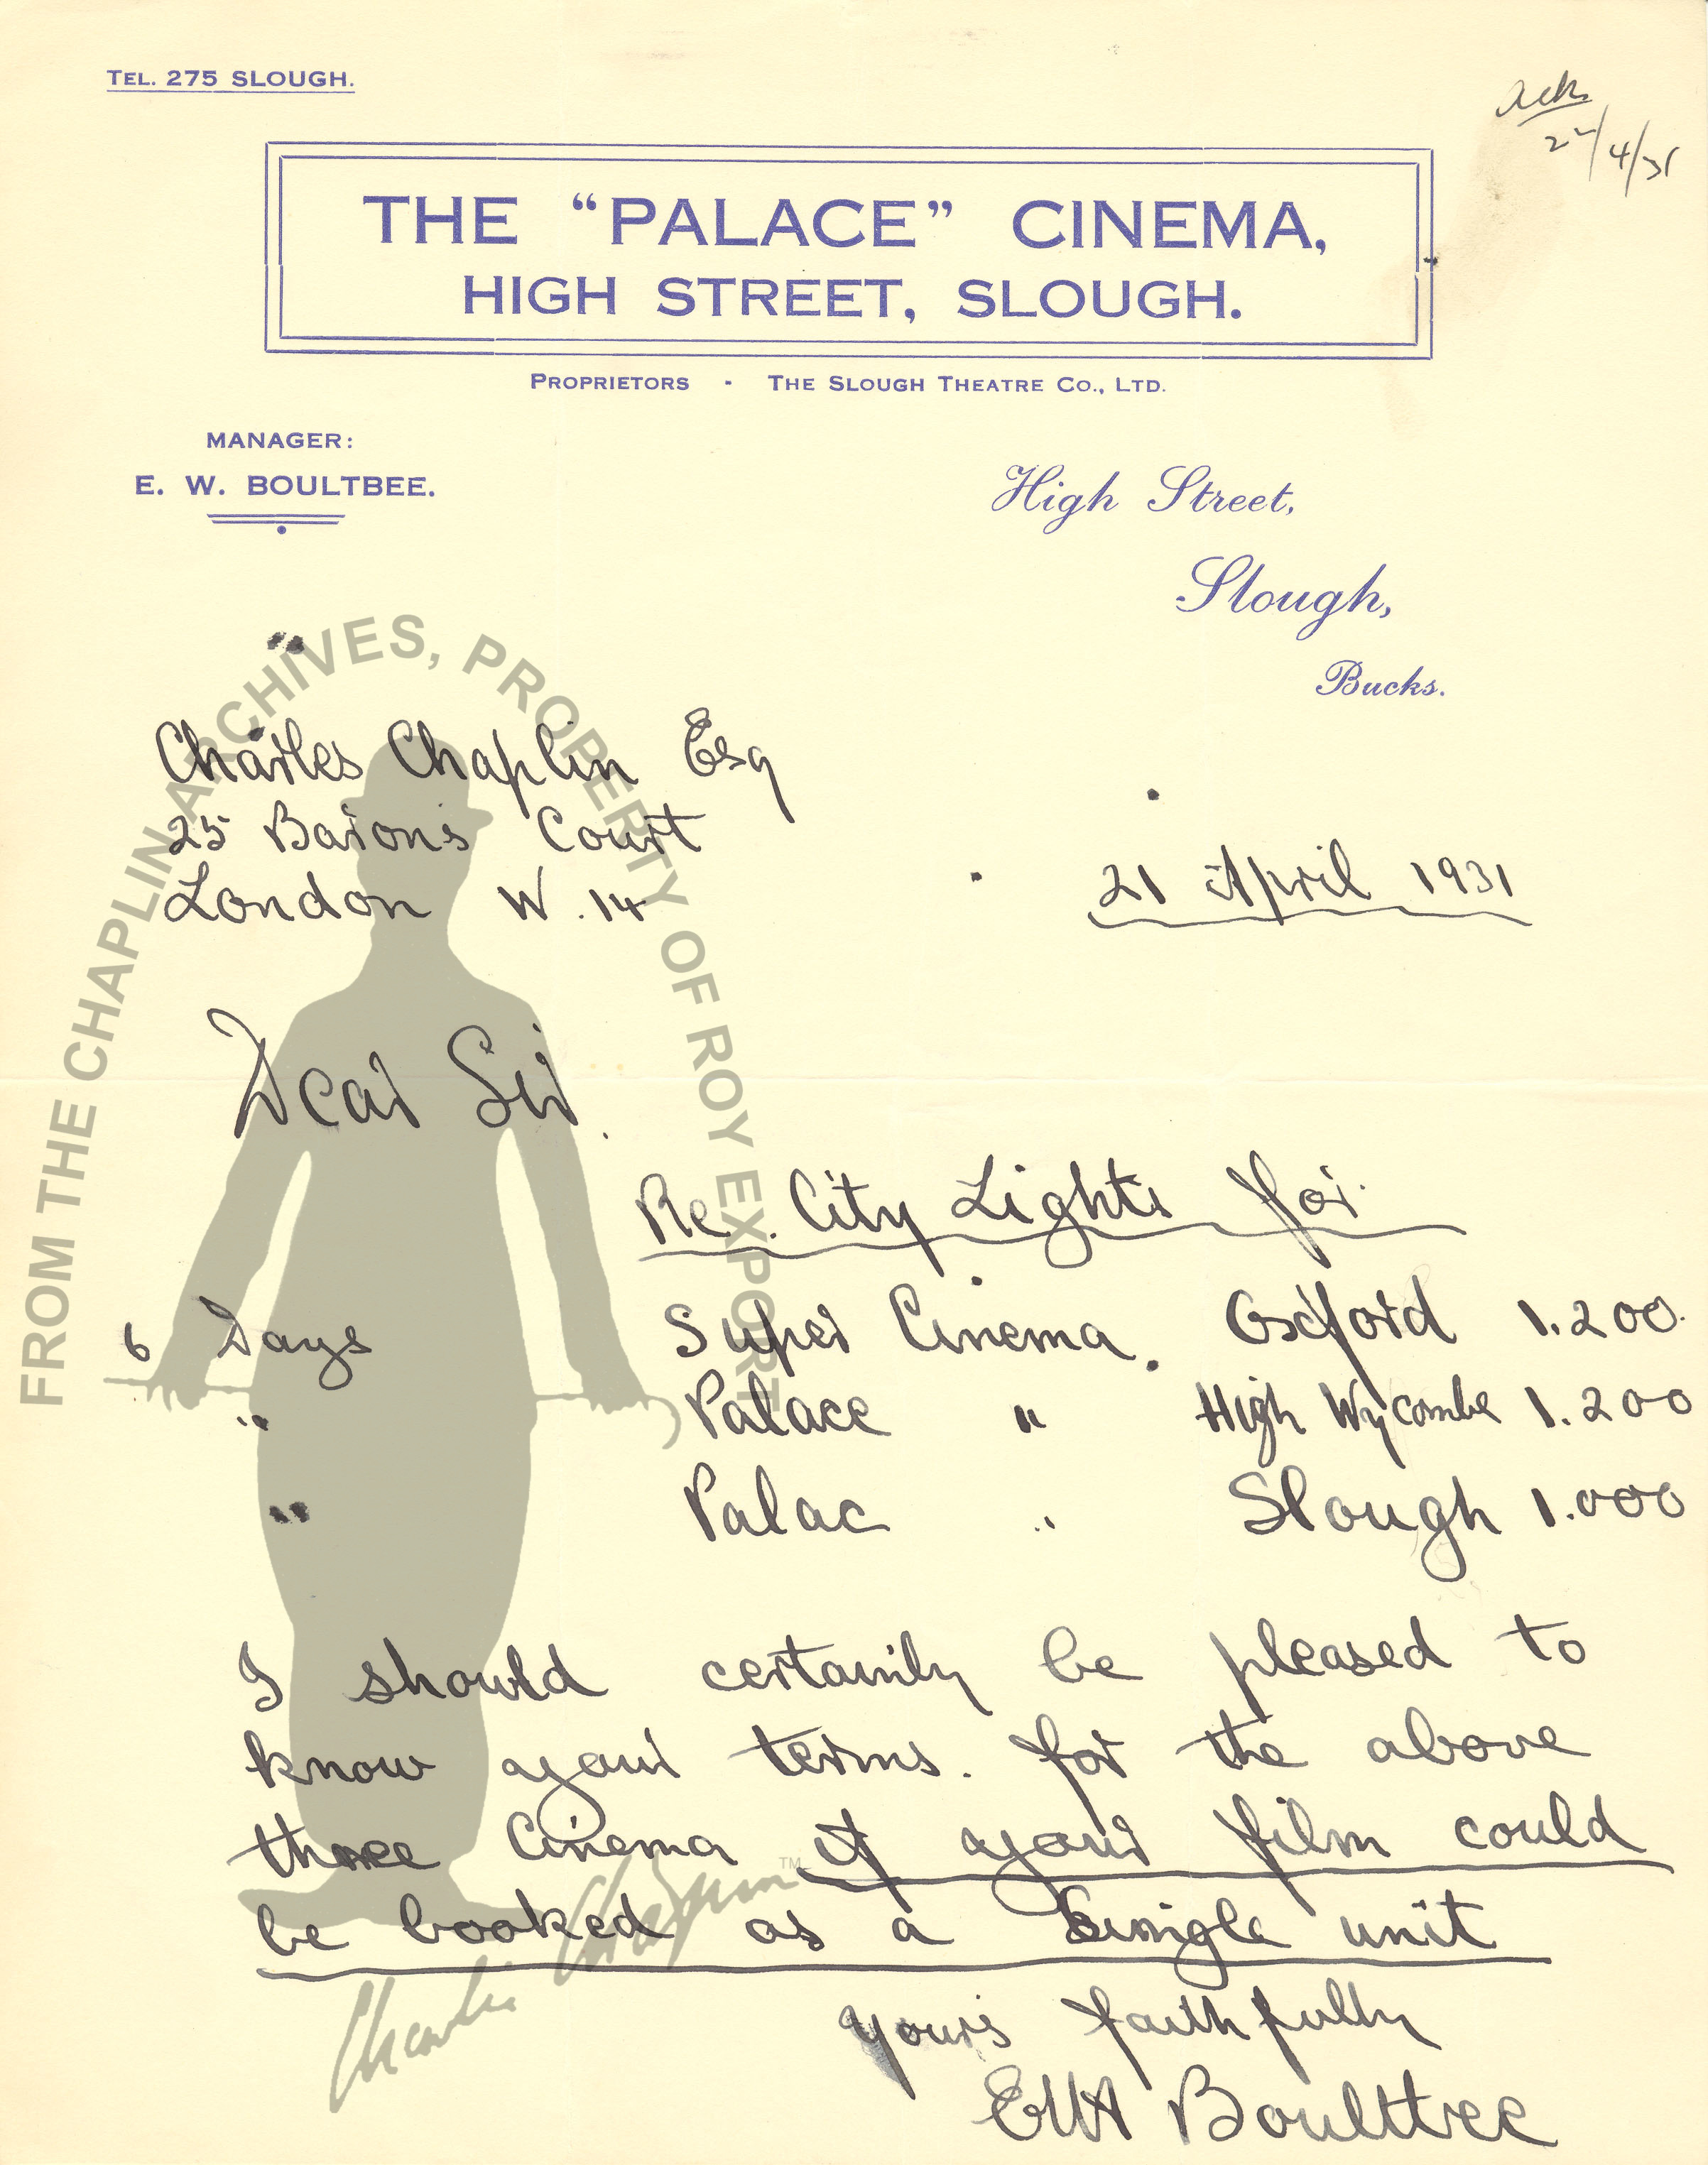 TEL. 275 SLOUGH.
Ack
22/4/31
THE "PALACE" CINEMA,
HIGH STREET, SLOUGH.
PROPRIETORS - THE SLOUGH THEATRE CO., LTD.
MANAGER:
E. W. BOULTBEE.
High Street,
Slough,
Bucks.
Charles Chaplin Esq
25 Barons Court
London W.14
21 April 1931
Dear Sir.
Re. City Lights for
6 Days Super Cinema. Oxford 1.200.
" Palace " High Wycombe 1.200
" Palac " Slough 1.000
I should certainly be pleased to
know your terms. for the above
three Cinema if your film could
be booked as a Single unit
yours faithfully
EW Boultbee
FROM THE CHAPLIN ARCHIVES, PROPERTY OF ROY EXPORT
Charlie Chaplin™